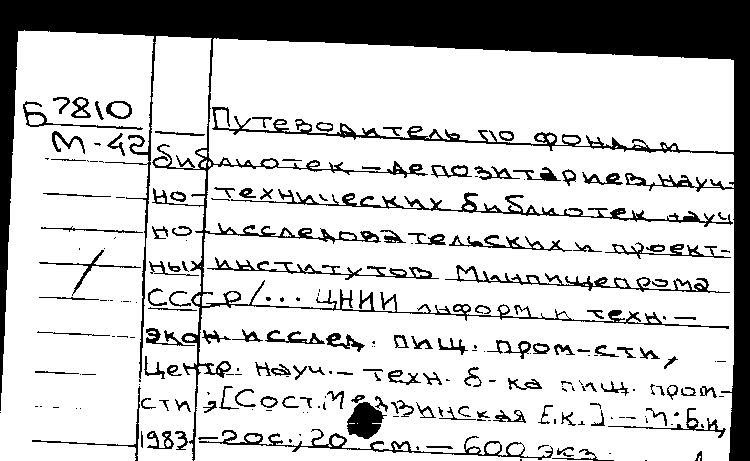 Б 7810
М-42
Путеводитель по фондам
библиотек-депозитариев, науч-
но-технических библиотек науч
но-исследовательских и проект-
ных институтов Минпищепрома
СССР/... ЦНИИ информ. и техн.-
экон. исслед. пищ. пром-сти,
Центр. науч.-техн. б-ка пищ. пром-
сти; [Сост. Медзвинская Е.К.].-М.: Б.и,
1983.-20с.; 20 см.-600 экз.